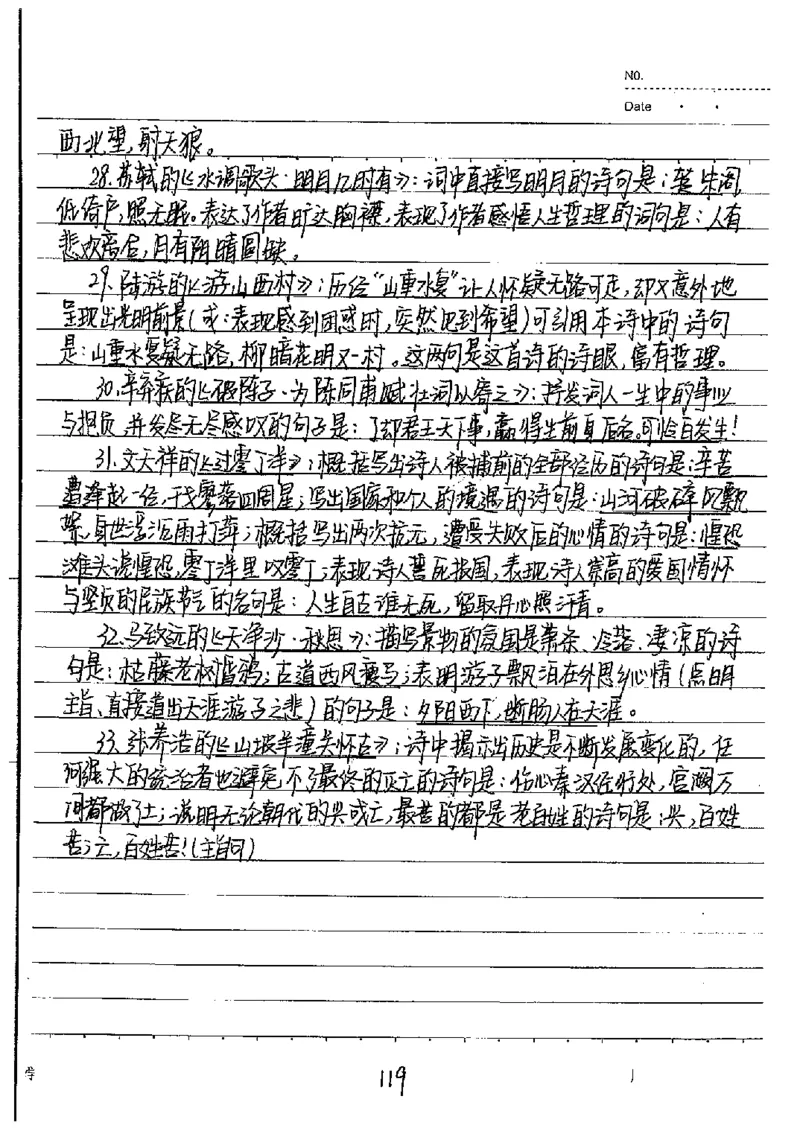 NO.
Date
西北望,射天狼。
28.苏轼的《水调歌头·明月几时有》:词中直接写明月的诗句是:转朱阁,
低绮户,照无眠。表达了作者旷达胸襟,表现了作者感悟人生哲理的词句是:人有
悲欢离合,月有阴晴圆缺。
29.陆游的《游山西村》:历经“山重水复”让人怀疑无路可走,却又意外地
呈现出光明前景(或:表现感到困惑时,突然见到希望)可引用本诗中的诗句
是:山重水复疑无路,柳暗花明又一村。这两句是这首诗的诗眼,富有哲理。
30.辛弃疾的《破阵子·为陈同甫赋壮词以寄之》:抒发词人一生中的事业
与抱负,并发尽无尽感叹的句子是:了却君王天下事,赢得生前身后名。可怜白发生!
31.文天祥的《过零丁洋》:概括写出诗人被捕前的全部经历的诗句是:辛苦
遭逢起一经,干戈寥落四周星;写出国家和个人的境遇的诗句是:山河破碎风飘
絮,身世浮沉雨打萍;概括写出两次抗元,遭受失败后的心情的诗句是:惶恐
滩头说惶恐,零丁洋里叹零丁;表现诗人誓死报国,表现诗人崇高的爱国情怀
与坚贞的民族节气的名句是:人生自古谁无死,留取丹心照汗青。
32.马致远的《天净沙·秋思》:描写景物的氛围是萧条、冷落、凄凉的诗
句是:枯藤老树昏鸦;古道西风瘦马;表明游子飘泊在外思乡心情(点明
主旨、直接道出天涯游子之悲)的句子是:夕阳西下,断肠人在天涯。
33.张养浩的《山坡羊·潼关怀古》:诗中揭示出历史是不断发展变化的,任
何强大的统治者也避免不了最终的灭亡的诗句是:伤心秦汉经行处,宫阙万
间都做了土;说明无论朝代的兴或亡,最苦的都是老百姓的诗句是:兴,百姓
苦;亡,百姓苦!(主旨句)
学
119